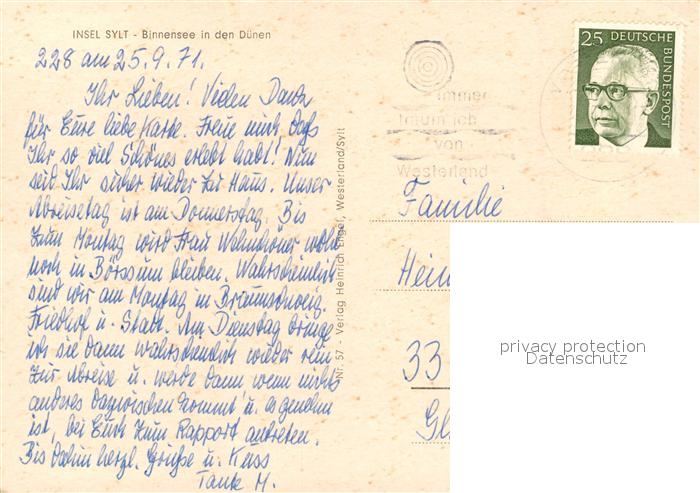 INSEL SYLT - Binnensee in den Dünen
228 am 25.9.71.
Ihr Lieben! Vielen Dank
für Eure liebe Karte. Freue mich, daß
Ihr so viel Schönes erlebt habt! Nun
seid Ihr sicher wieder zu Haus. Unser
Abreisetag ist am Donnerstag. Bis
zum Montag wird Frau wohl
noch in Börssum bleiben. Wahrscheinlich
sind wir am Montag in Braunschweig.
Friedhof u. Stadt. Am Dienstag bringe
ich sie dann wahrscheinlich wieder rein
zur Abreise u. werde dann wenn nichts
anderes dazwischen kommt u. es genehm
ist, bei Euch zum Rapport antreten.
Bis dahin herzl. Grüße u. Kuss
Tante M.
Nr. 57 - Verlag Heinrich Enger, Westerland/Sylt
immer
träum ich
von
Westerland
25 DEUTSCHE
BUNDESPOST
Familie
Hein
33
Gl
privacy protection
Datenschutz